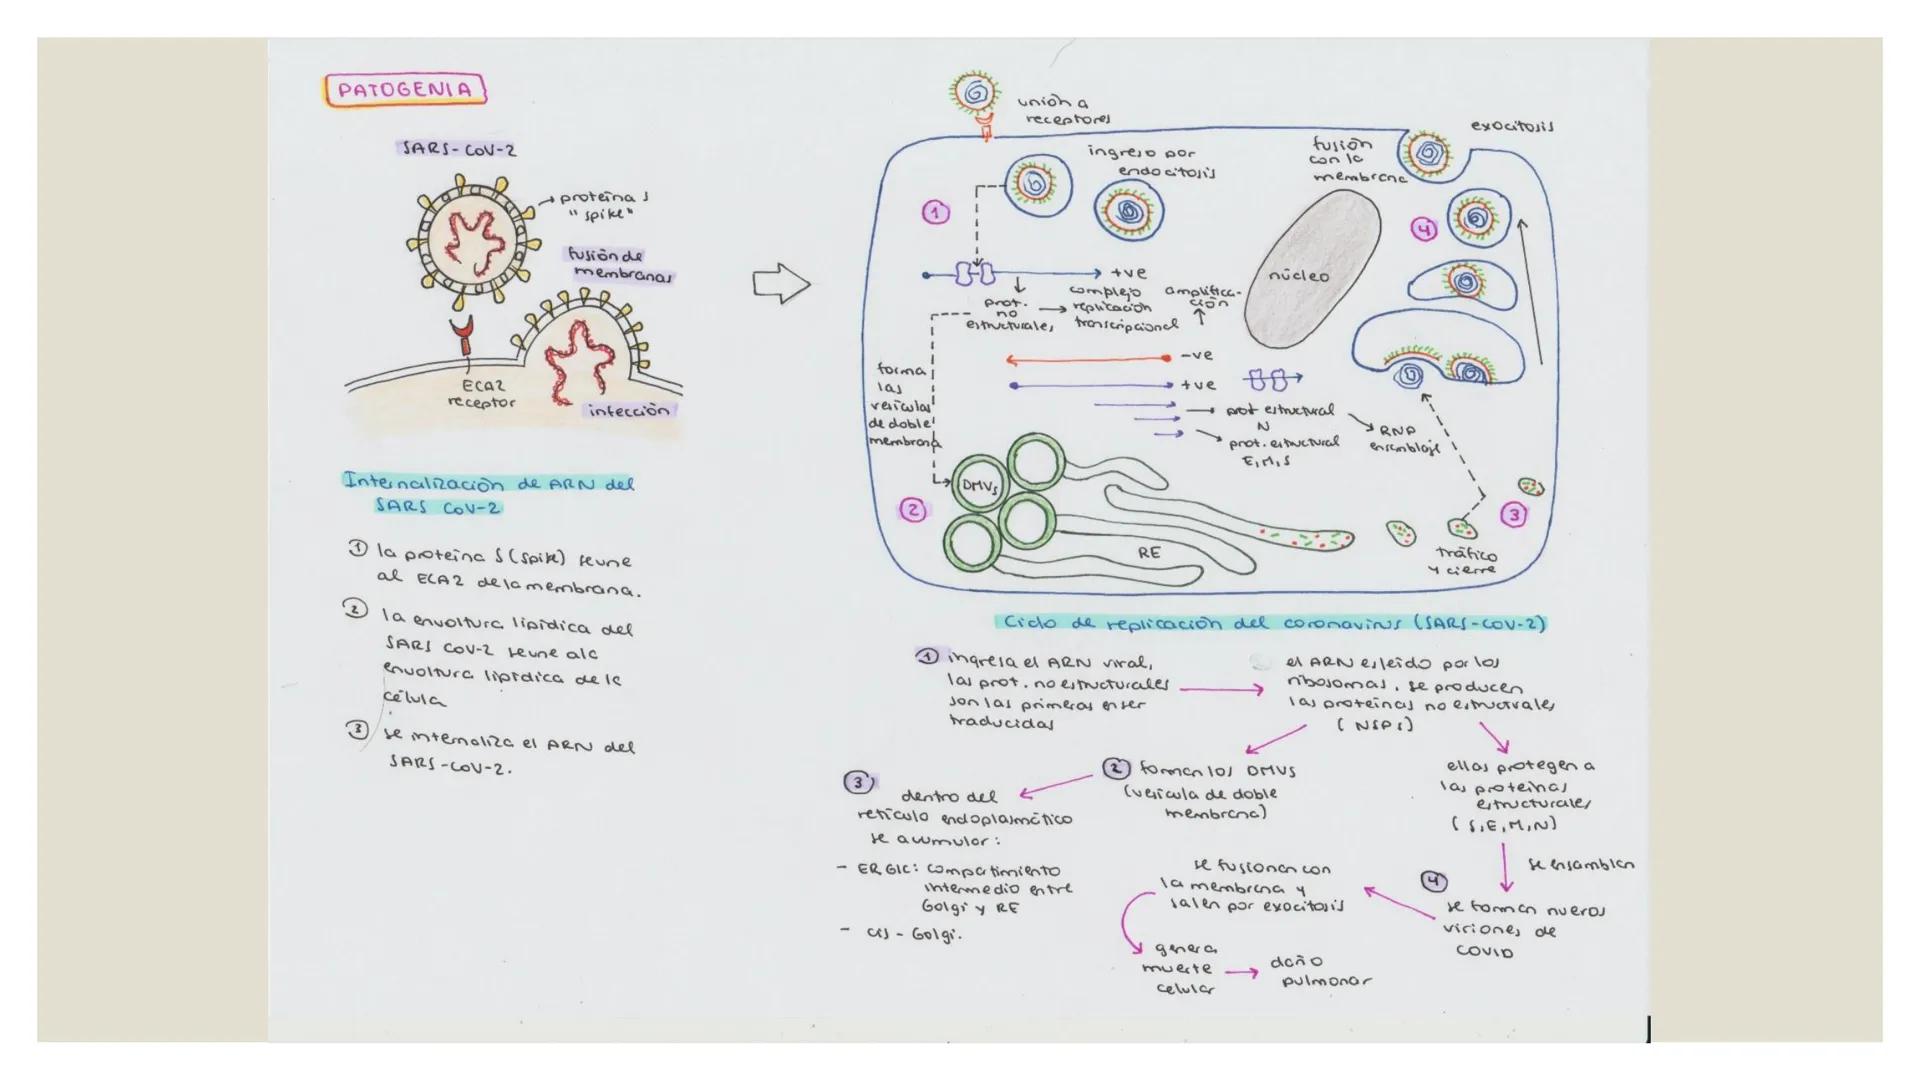 PATOGENIA
SARS-CoV-2
proteína S
"spike"
fusión de
membranas
ECA2
receptor
infección
Internalización de ARN del
SARS CoV-2
① la proteína S (spike) se une
al ECA2 de la membrana.
② la envoltura lipídica del
SARS CoV-2 se une a la
envoltura lipídica de la
célula
③ se internaliza el ARN del
SARS-CoV-2.
unión a
receptores
ingreso por
endocitosis
fusión
con la
membrana
exocitosis
1
4
núcleo
+ve
prot.
no
estructurales
complejo
replicación
transcripcional
amplifica-
ción
-ve
+ve
forma
las
vesículas
de doble
membrana
prot estructural
N
prot. estructural
E, M, S
RNP
ensamblaje
DMVs
2
RE
3
tráfico
y cierre
Ciclo de replicación del coronavirus (SARS-CoV-2)
① ingresa el ARN viral,
las prot. no estructurales
son las primeras en ser
traducidas
el ARN es leido por los
ribosomas, se producen
las proteínas no estructurales
(NSPs)
② forman los DMVs
(vesícula de doble
membrana)
ellas protegen a
las proteínas
estructurales
(S, E, M, N)
③
dentro del
retículo endoplasmático
se acumular:
- ERGIC: compatimiento
intermedio entre
Golgi y RE
- cis-Golgi.
se ensamblan
④
se forman nuevos
viriones de
COVID
se fusionan con
la membrana y
salen por exocitosis
genera
muerte
celular
daño
pulmonar